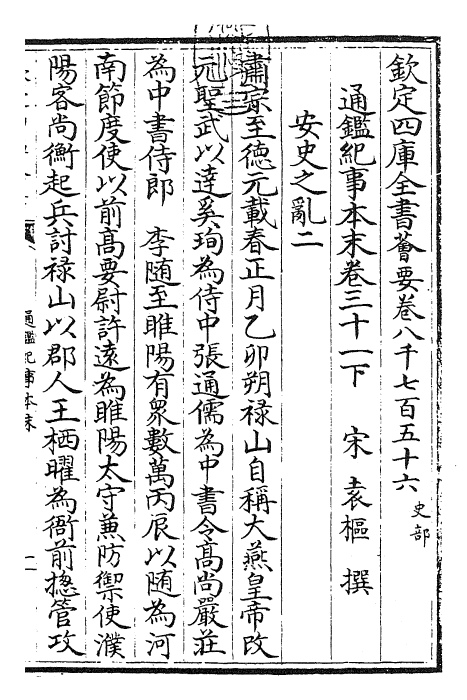 欽定四庫全書薈要卷八千七百五十六 史部
通鑑紀事本末卷三十一下 宋 袁樞 撰
安史之亂二
肅宗至德元載春正月乙卯朔禄山自稱大燕皇帝改
元聖武以達奚珣為侍中張通儒為中書令髙尚嚴莊
為中書侍郎 李随至睢陽有衆數萬丙辰以随為河
南節度使以前髙要尉許遠為睢陽太守兼防禦使濮
陽客尚衡起兵討禄山以郡人王栖曜為衙前揔管攻
通鑑紀事本末